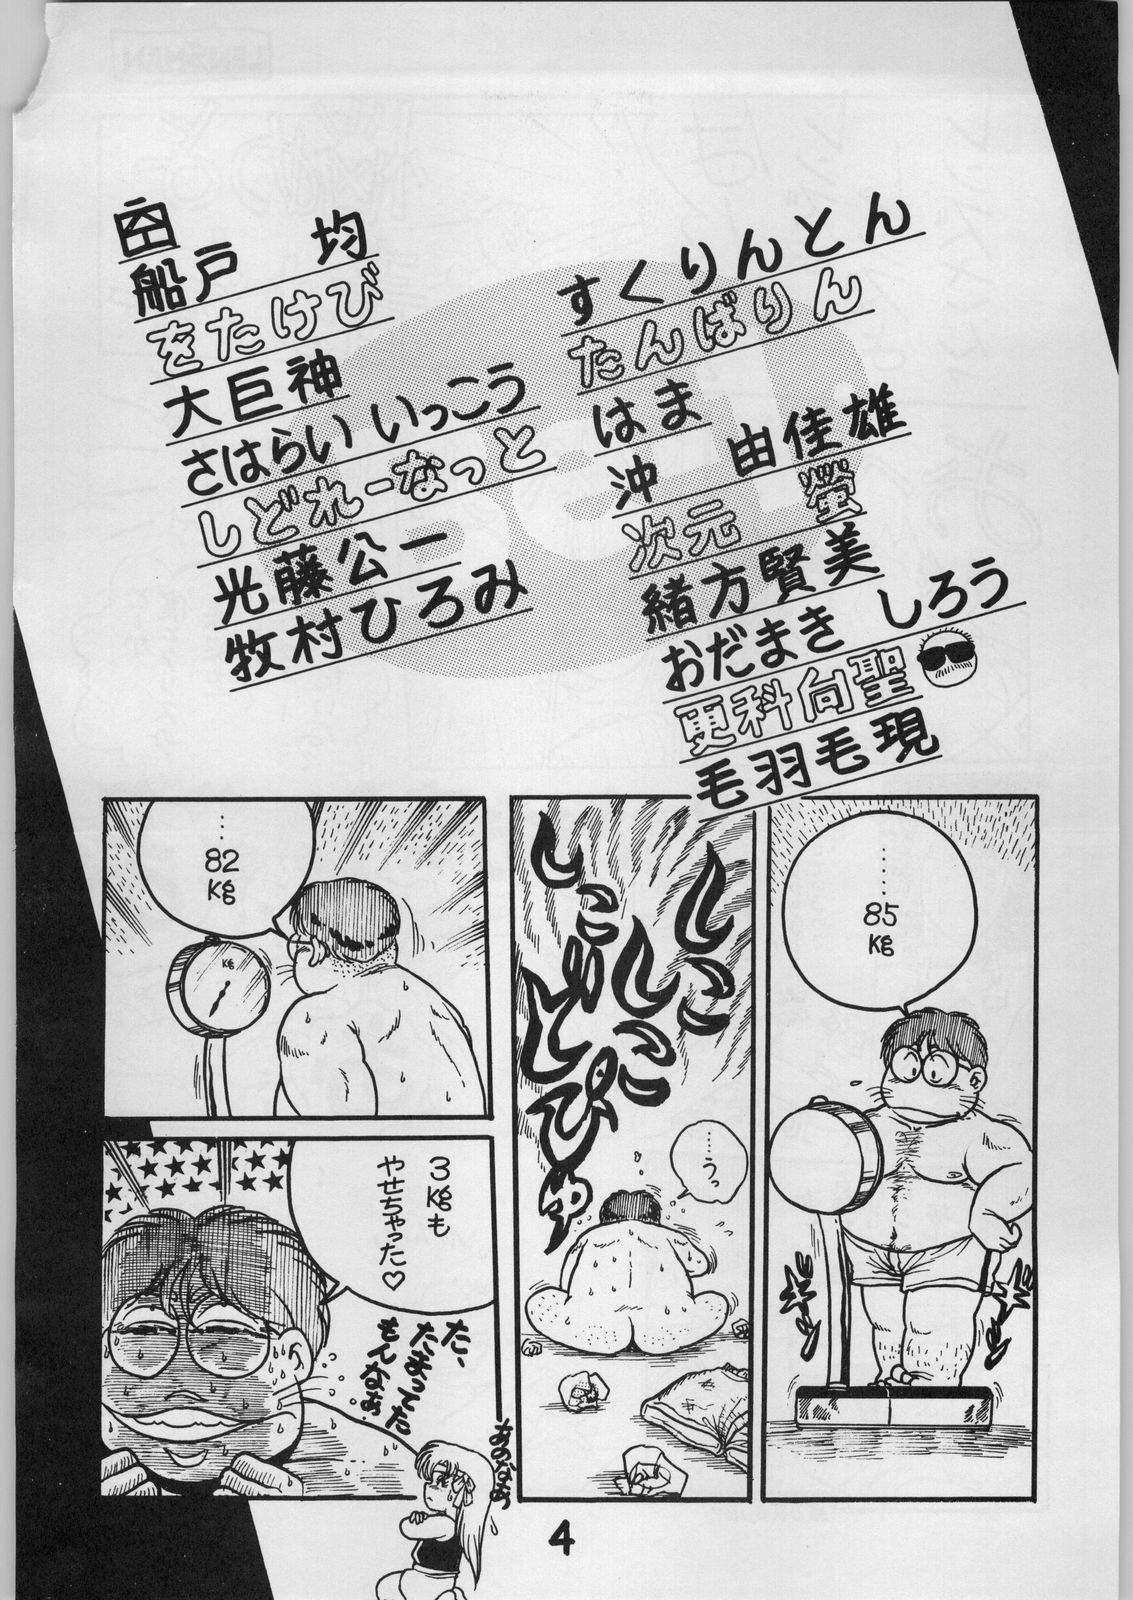 船戸 均
をたけび
大巨神
さはらい いっこう
しどれーなっと
光藤公一
牧村ひろみ
すくりんとん
たんばりん
はま
沖 由佳雄
次元 螢
緒方賢美
おだまき しろう
更科向聖
毛羽毛現
……
85
kg
しこしこ
しこしこ
……うっ
……
82
kg
kg
3kgも
やせちゃった♡
た、
たまってた
もんなぁ
あのなあ
4